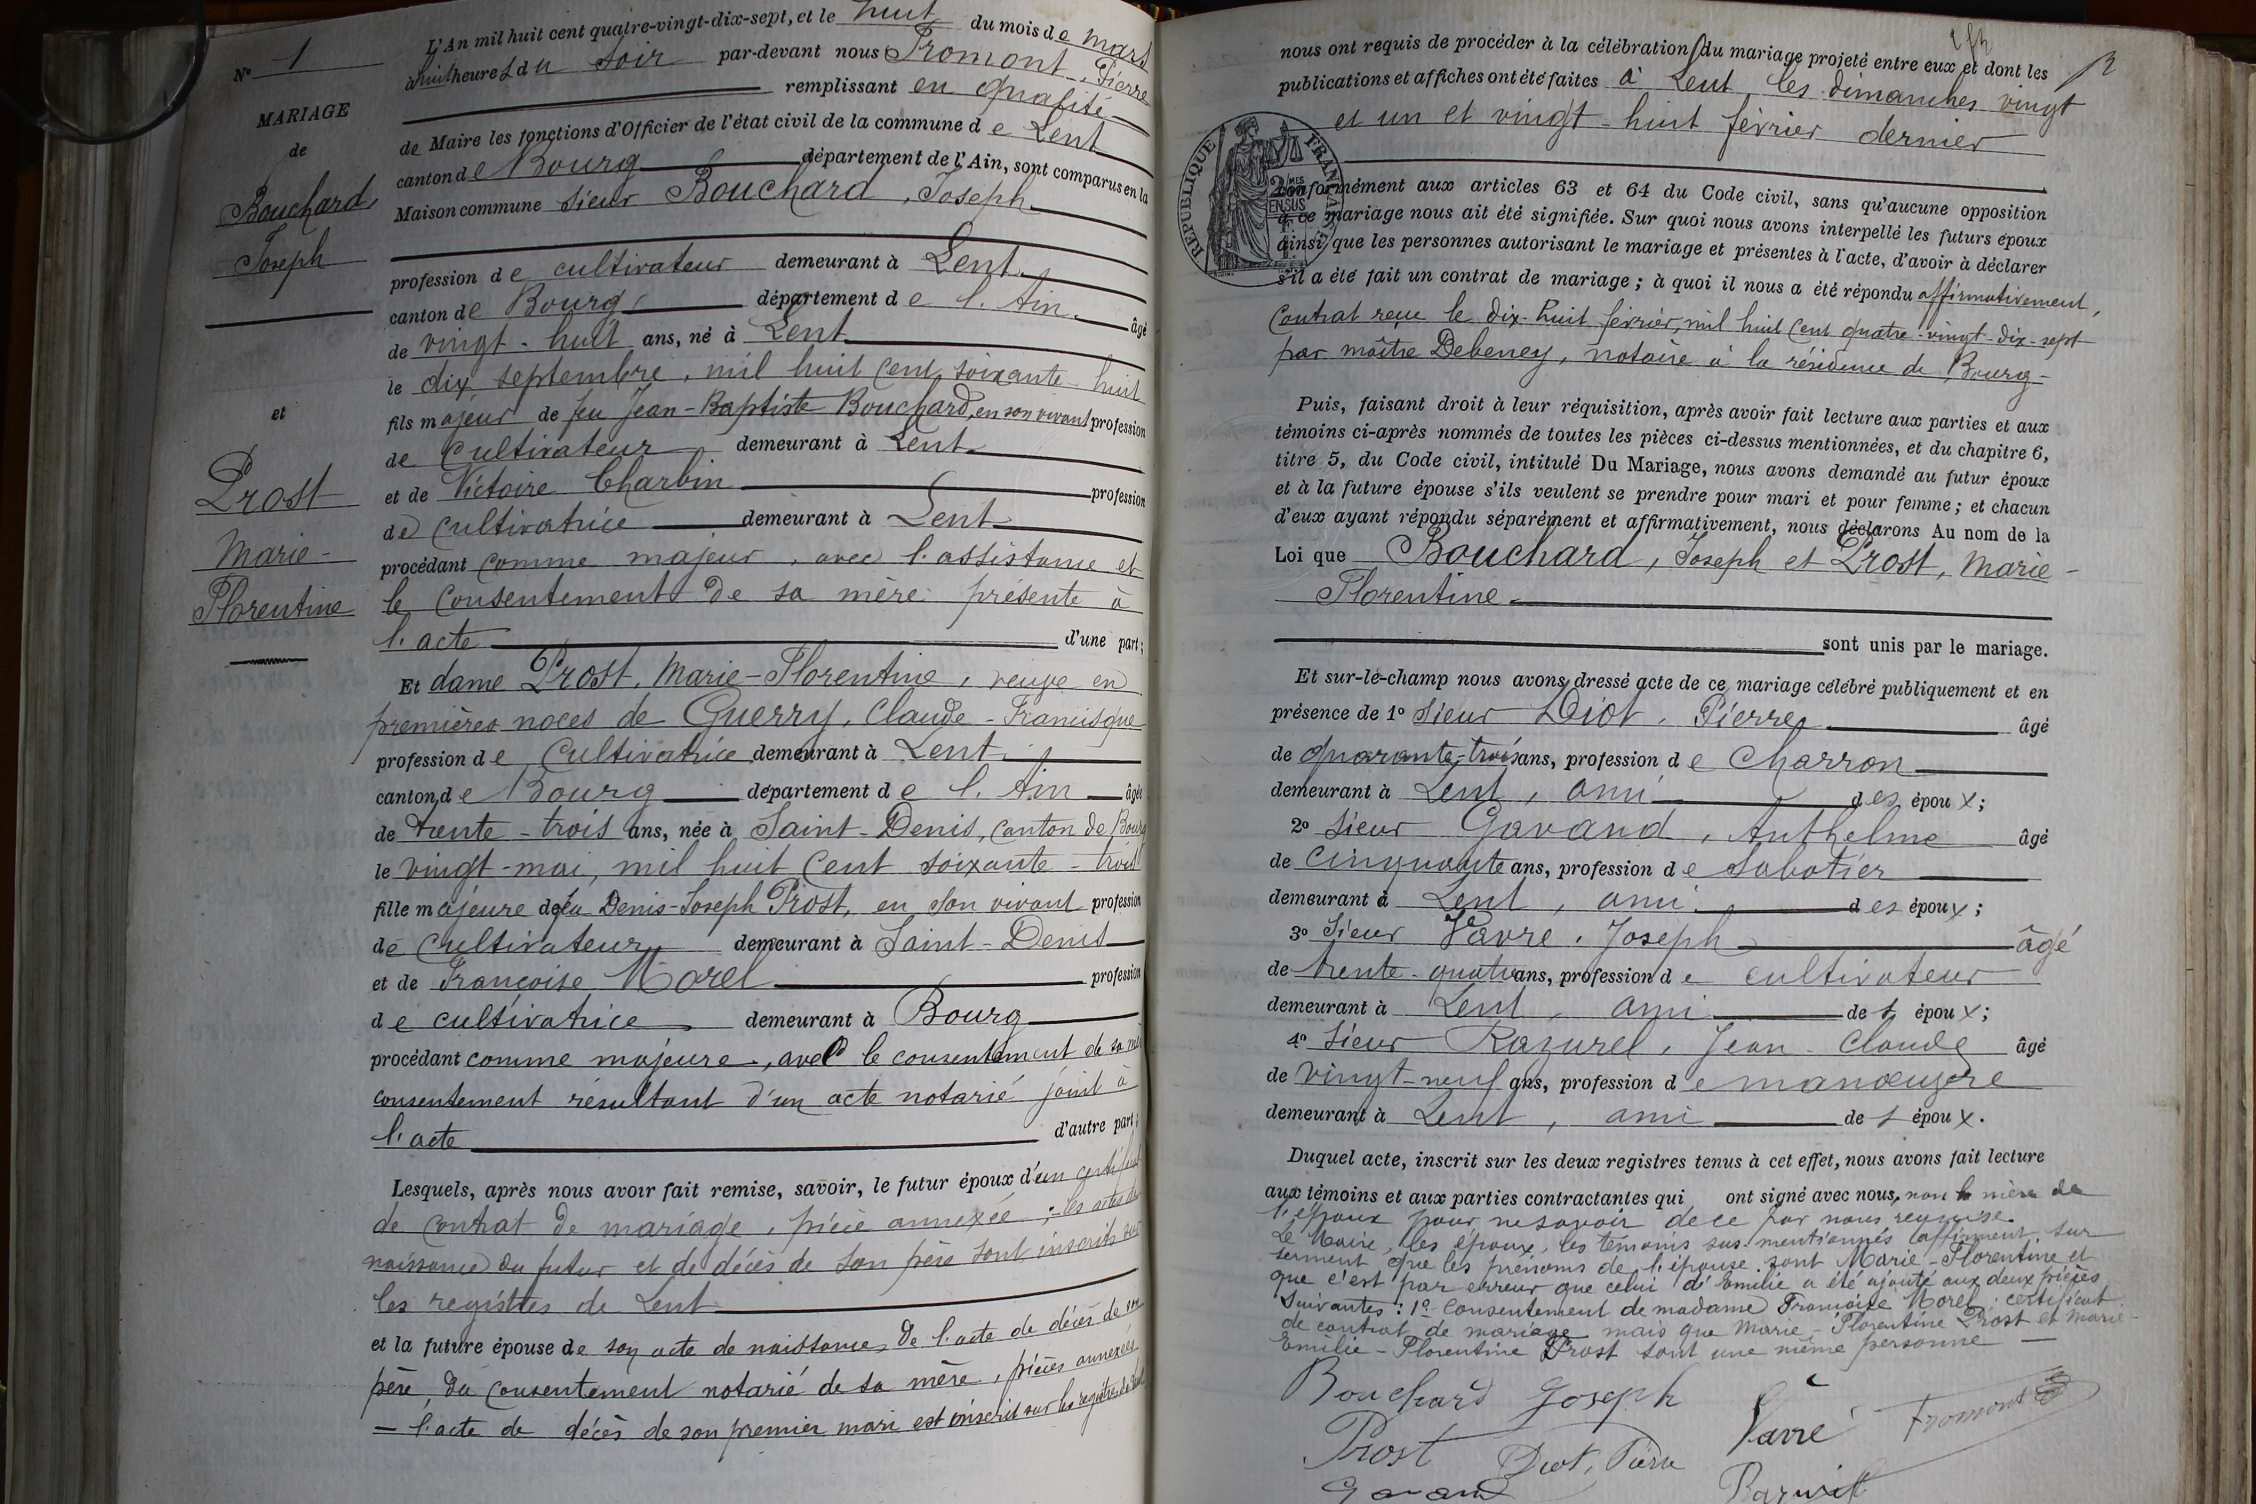 L'An mil huit cent quatre-vingt-dix-sept, et le huit du mois de mars
à huit heures du soir par-devant nous Fromont, Pierre
remplissant en qualité
de Maire les fonctions d'Officier de l'état civil de la commune de Lent
canton de Bourg département de l'Ain, sont comparus en la
Maison commune sieur Bouchard, Joseph
profession de cultivateur demeurant à Lent
canton de Bourg département de l'Ain âgé
de vingt-huit ans, né à Lent
le dix septembre, mil huit cent soixante-huit
fils majeur de feu Jean-Baptiste Bouchard, en son vivant profession
de cultivateur demeurant à Lent
et de Victoire Charbin profession
de cultivatrice demeurant à Lent
procédant comme majeur, avec l'assistance et
le consentement de sa mère présente à
l'acte d'une part;
Et dame Prost, Marie-Florentine, veuve en
premières noces de Guerry, Claude-Francisque
profession de cultivatrice demeurant à Lent
canton de Bourg département de l'Ain âgée
de trente-trois ans, née à Saint-Denis, canton de Bourg
le vingt-mai, mil huit cent soixante-trois
fille majeure de feu Denis-Joseph Prost, en son vivant profession
de cultivateur demeurant à Saint-Denis
et de Françoise Morel profession
de cultivatrice demeurant à Bourg
procédant comme majeure, avec le consentement de sa mère
consentement résultant d'un acte notarié joint à
l'acte d'autre part;
Lesquels, après nous avoir fait remise, savoir, le futur époux d'un certificat
de contrat de mariage, pièce annexée; - les actes de
naissance du futur et de décès de son père sont inscrits sur
les registres de Lent
et la future épouse de son acte de naissance, de l'acte de décès de son
père, du consentement notarié de sa mère, pièces annexées
- l'acte de décès de son premier mari est inscrit sur les registres de Lent
N° 1
MARIAGE
de
Bouchard,
Joseph
et
Prost
Marie-
Florentine
2
nous ont requis de procéder à la célébration du mariage projeté entre eux et dont les
publications et affiches ont été faites à Lent les dimanches vingt
et un et vingt-huit février dernier
RÉPUBLIQUE FRANÇAISE
2 MES
EN SUS
conformément aux articles 63 et 64 du Code civil, sans qu'aucune opposition
à ce mariage nous ait été signifiée. Sur quoi nous avons interpellé les futurs époux
ainsi que les personnes autorisant le mariage et présentes à l'acte, d'avoir à déclarer
s'il a été fait un contrat de mariage; à quoi il nous a été répondu affirmativement,
Contrat reçu le dix-huit février, mil huit cent quatre-vingt-dix-sept
par maître Debeney, notaire à la résidence de Bourg-
Puis, faisant droit à leur réquisition, après avoir fait lecture aux parties et aux
témoins ci-après nommés de toutes les pièces ci-dessus mentionnées, et du chapitre 6,
titre 5, du Code civil, intitulé Du Mariage, nous avons demandé au futur époux
et à la future épouse s'ils veulent se prendre pour mari et pour femme; et chacun
d'eux ayant répondu séparément et affirmativement, nous déclarons Au nom de la
Loi que Bouchard, Joseph et Prost, Marie-
Florentine
sont unis par le mariage.
Et sur-le-champ nous avons dressé acte de ce mariage célébré publiquement et en
présence de 1° sieur Diot, Pierre âgé
de quarante-trois ans, profession de charron
demeurant à Lent, ami des époux;
2° sieur Gavand, Anthelme âgé
de cinquante ans, profession de sabotier
demeurant à Lent, ami des époux;
3° sieur Vavre, Joseph âgé
de trente-quatre ans, profession de cultivateur
demeurant à Lent, ami des époux;
4° sieur Razurel, Jean-Claude âgé
de vingt-neuf ans, profession de manœuvre
demeurant à Lent, ami des époux.
Duquel acte, inscrit sur les deux registres tenus à cet effet, nous avons fait lecture
aux témoins et aux parties contractantes qui ont signé avec nous, non la mère de
l'époux pour ne savoir de ce par nous requise.
Le Maire, les époux, les témoins sus-mentionnés affirment sur
serment que les prénoms de l'épouse sont Marie-Florentine et
que c'est par erreur que celui d'Emilie a été ajouté aux deux pièces
suivantes: 1° consentement de madame Françoise Morel; certificat
de contrat de mariage mais que Marie-Florentine Prost et Marie-
Emilie-Florentine Prost sont une même personne
Bouchard Joseph
Vavre Fromont
Prost Diot, Pierre
Gavand